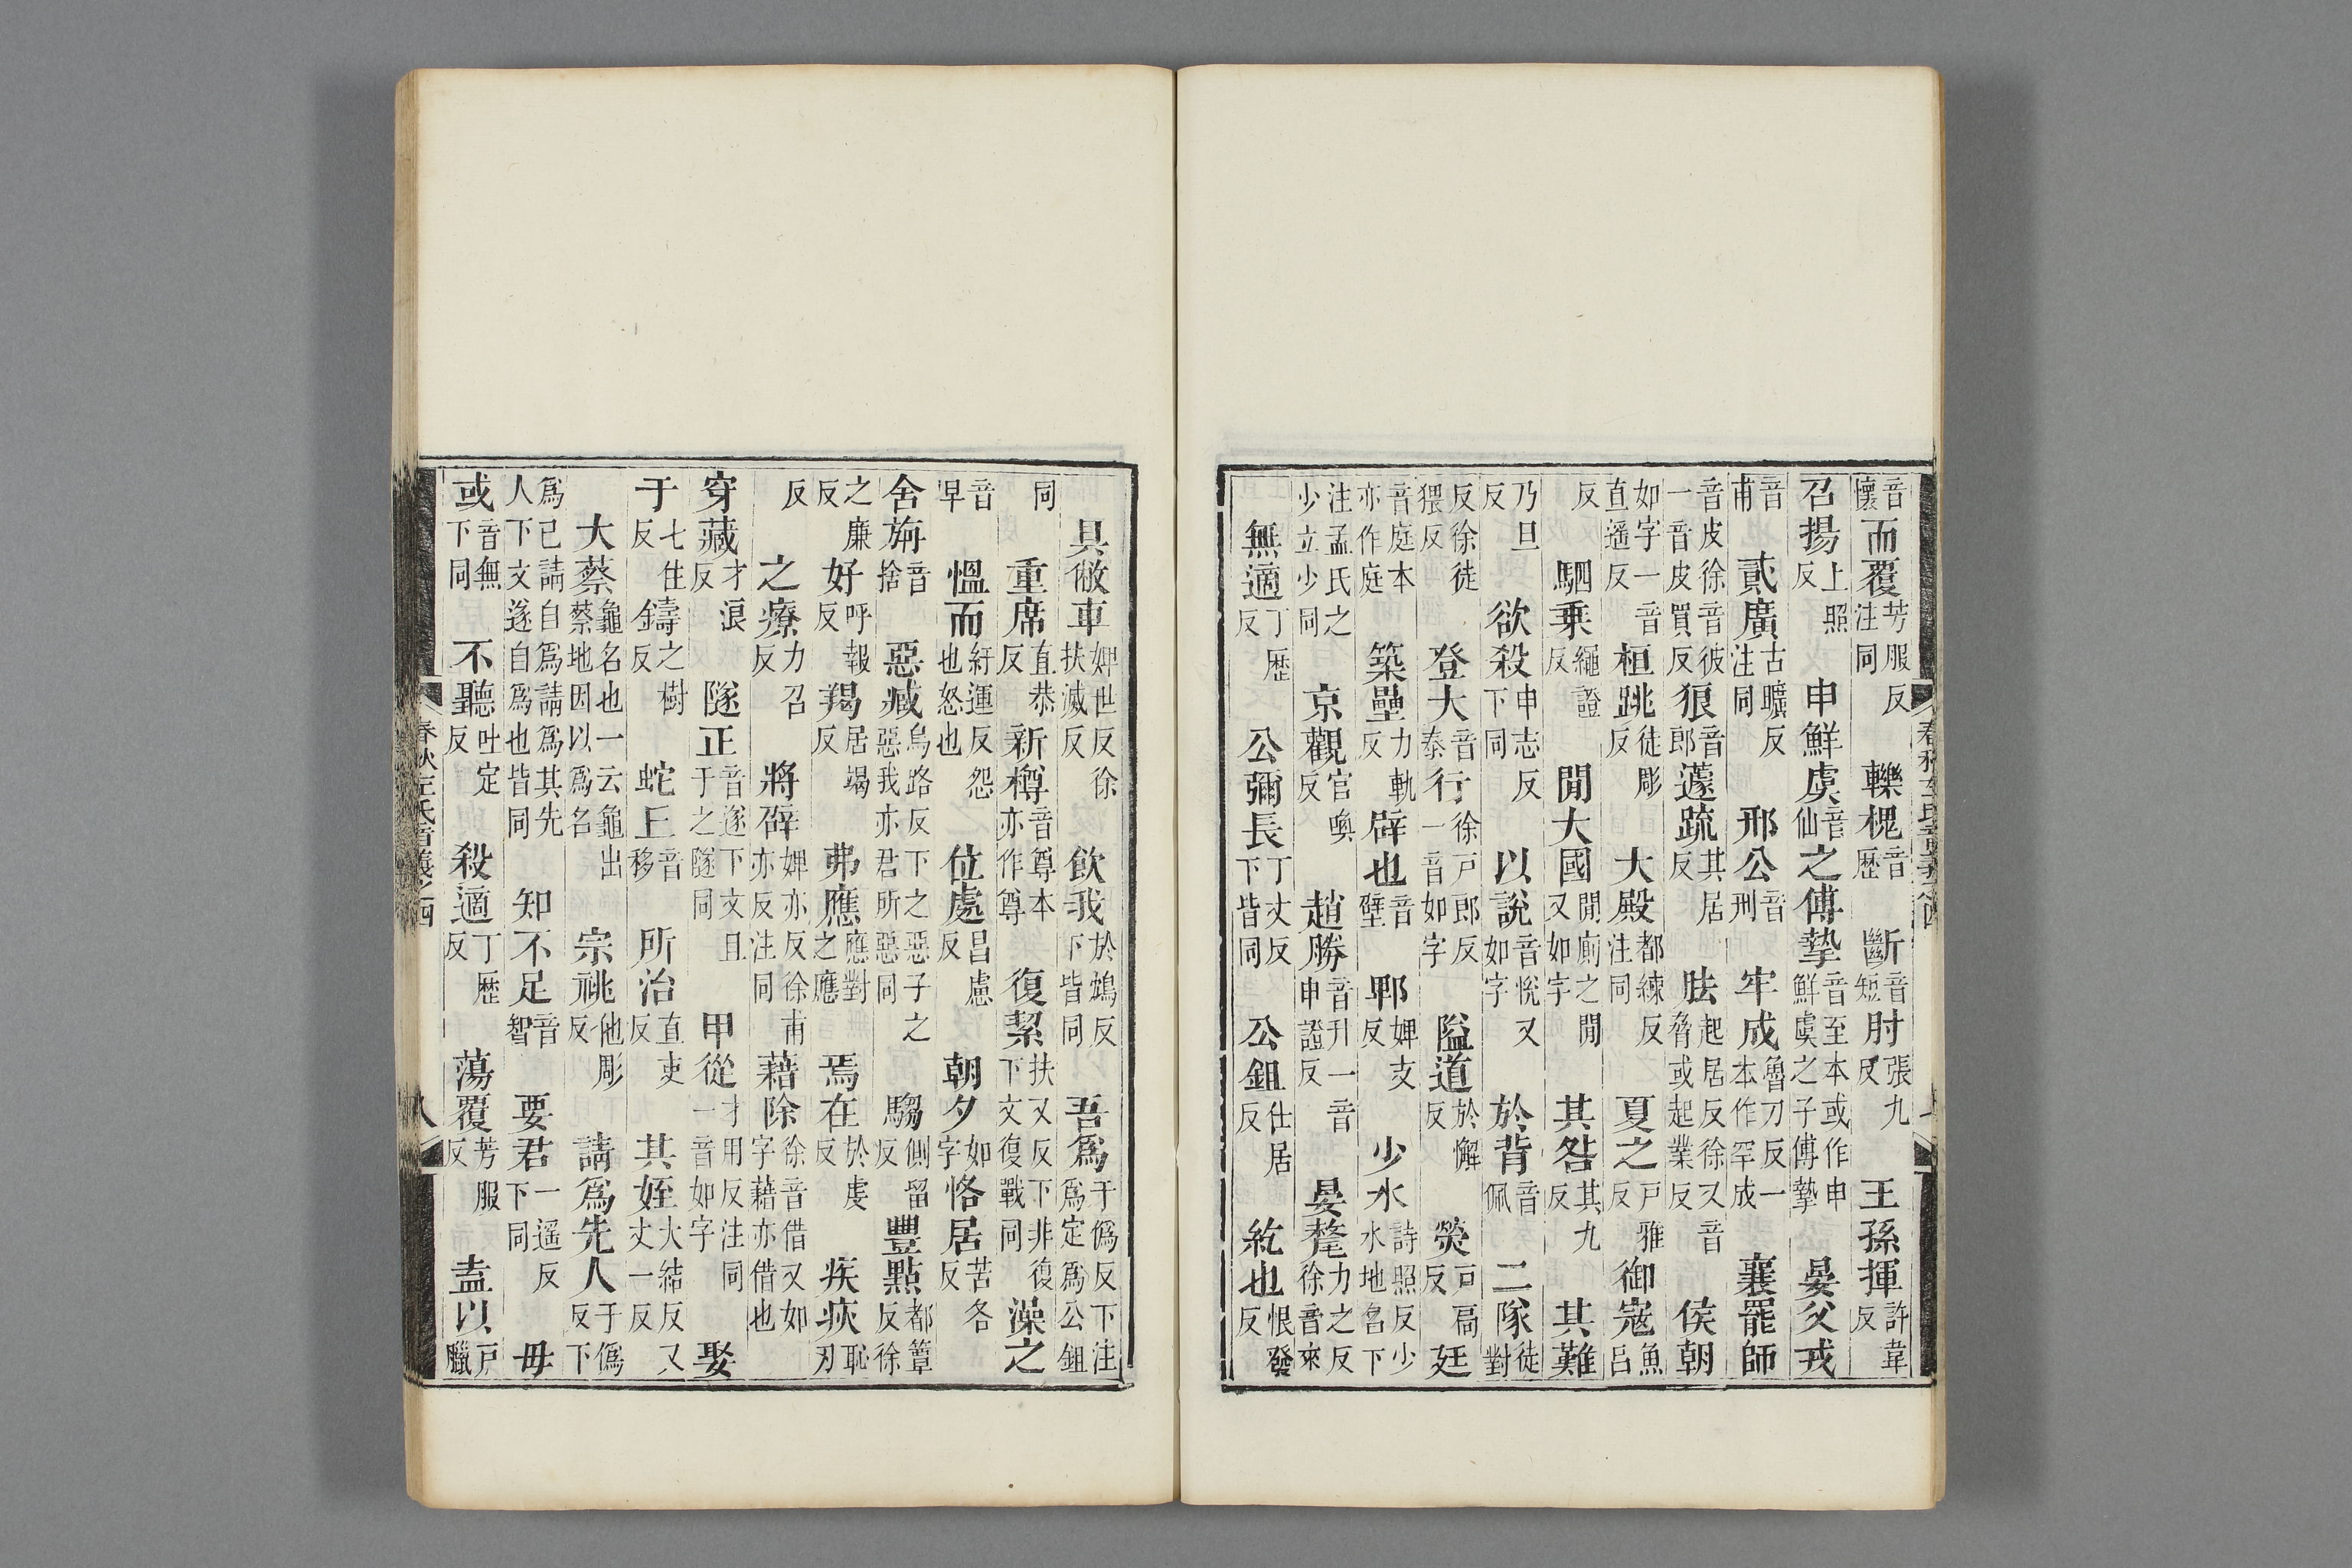 音懷而覆芳服反注同轢槐音歷斷音短肘張九反王孫揮許韋反
召揚上照反申鮮虞音仙之傅摯音至本或作申鮮虞之子傅摯晏父戎
音甫貳廣古曠反注同邢公音刑牢成魯刀反一本作罕成襄罷師
音皮徐音彼一音皮買反狼音郎蘧疏其居反胠起居反徐又音脅或起業反侯朝
如字一音直遥反桓跳徒彫反大殿都練反注同夏之戶雅反御寇魚呂
反駟乘繩證反閒大國閒厠之閒又如字其咎其九反其難
乃旦反欲殺申志反下同以說音悅又如字於背音佩二隊徒對
反徐徒猥反登大音泰行徐戶郎反一音如字隘道於懈反熒戸扃反廷
音庭本亦作庭築壘力軌反辟也音壁郫婢支反少水詩照反少水水地名下
注孟氏之少立少同京觀官喚反趙勝音升一音申證反晏氂力之反徐音來
無適丁歷反公彌長丁丈反下皆同公鉏仕居反紇也恨發反
春秋左氏音義之四
具敝車婢世反徐扶滅反飲我於鴆反下皆同吾爲于僞反下注爲定爲公鉏
同重席直恭反新樽音尊本亦作尊復絜扶又反下非復下文復戰同澡之
音早慍而紆運反怨也怒也位處昌慮反朝夕如字恪居苦各反
舍旃音捨惡臧烏路反下之惡子之惡我亦君所惡同騶側留反豐點都簟反徐
之廉反好呼報反羯居竭反弗應應對之應焉在於虔反疾疢恥刃
反之療力召反將辟婢亦反徐甫亦反注同藉除徐音借又如字藉亦借也
穿藏才浪反隧正音遂下文且于之隧同甲從才用反注同一音如字娶
于七住反鑄之樹反蛇丘音移所治直吏反其姪大結反又丈一反
大蔡龜名也一云龜出蔡地因以爲名宗祧他彫反請爲先人于僞反下
爲己請自爲請爲其先人下文遂自爲也皆同知不足音智要君一遥反下同毋
或音無下同不聽吐定反殺適丁歷反蕩覆芳服反盍以戶臘
春秋左氏音義之四
八